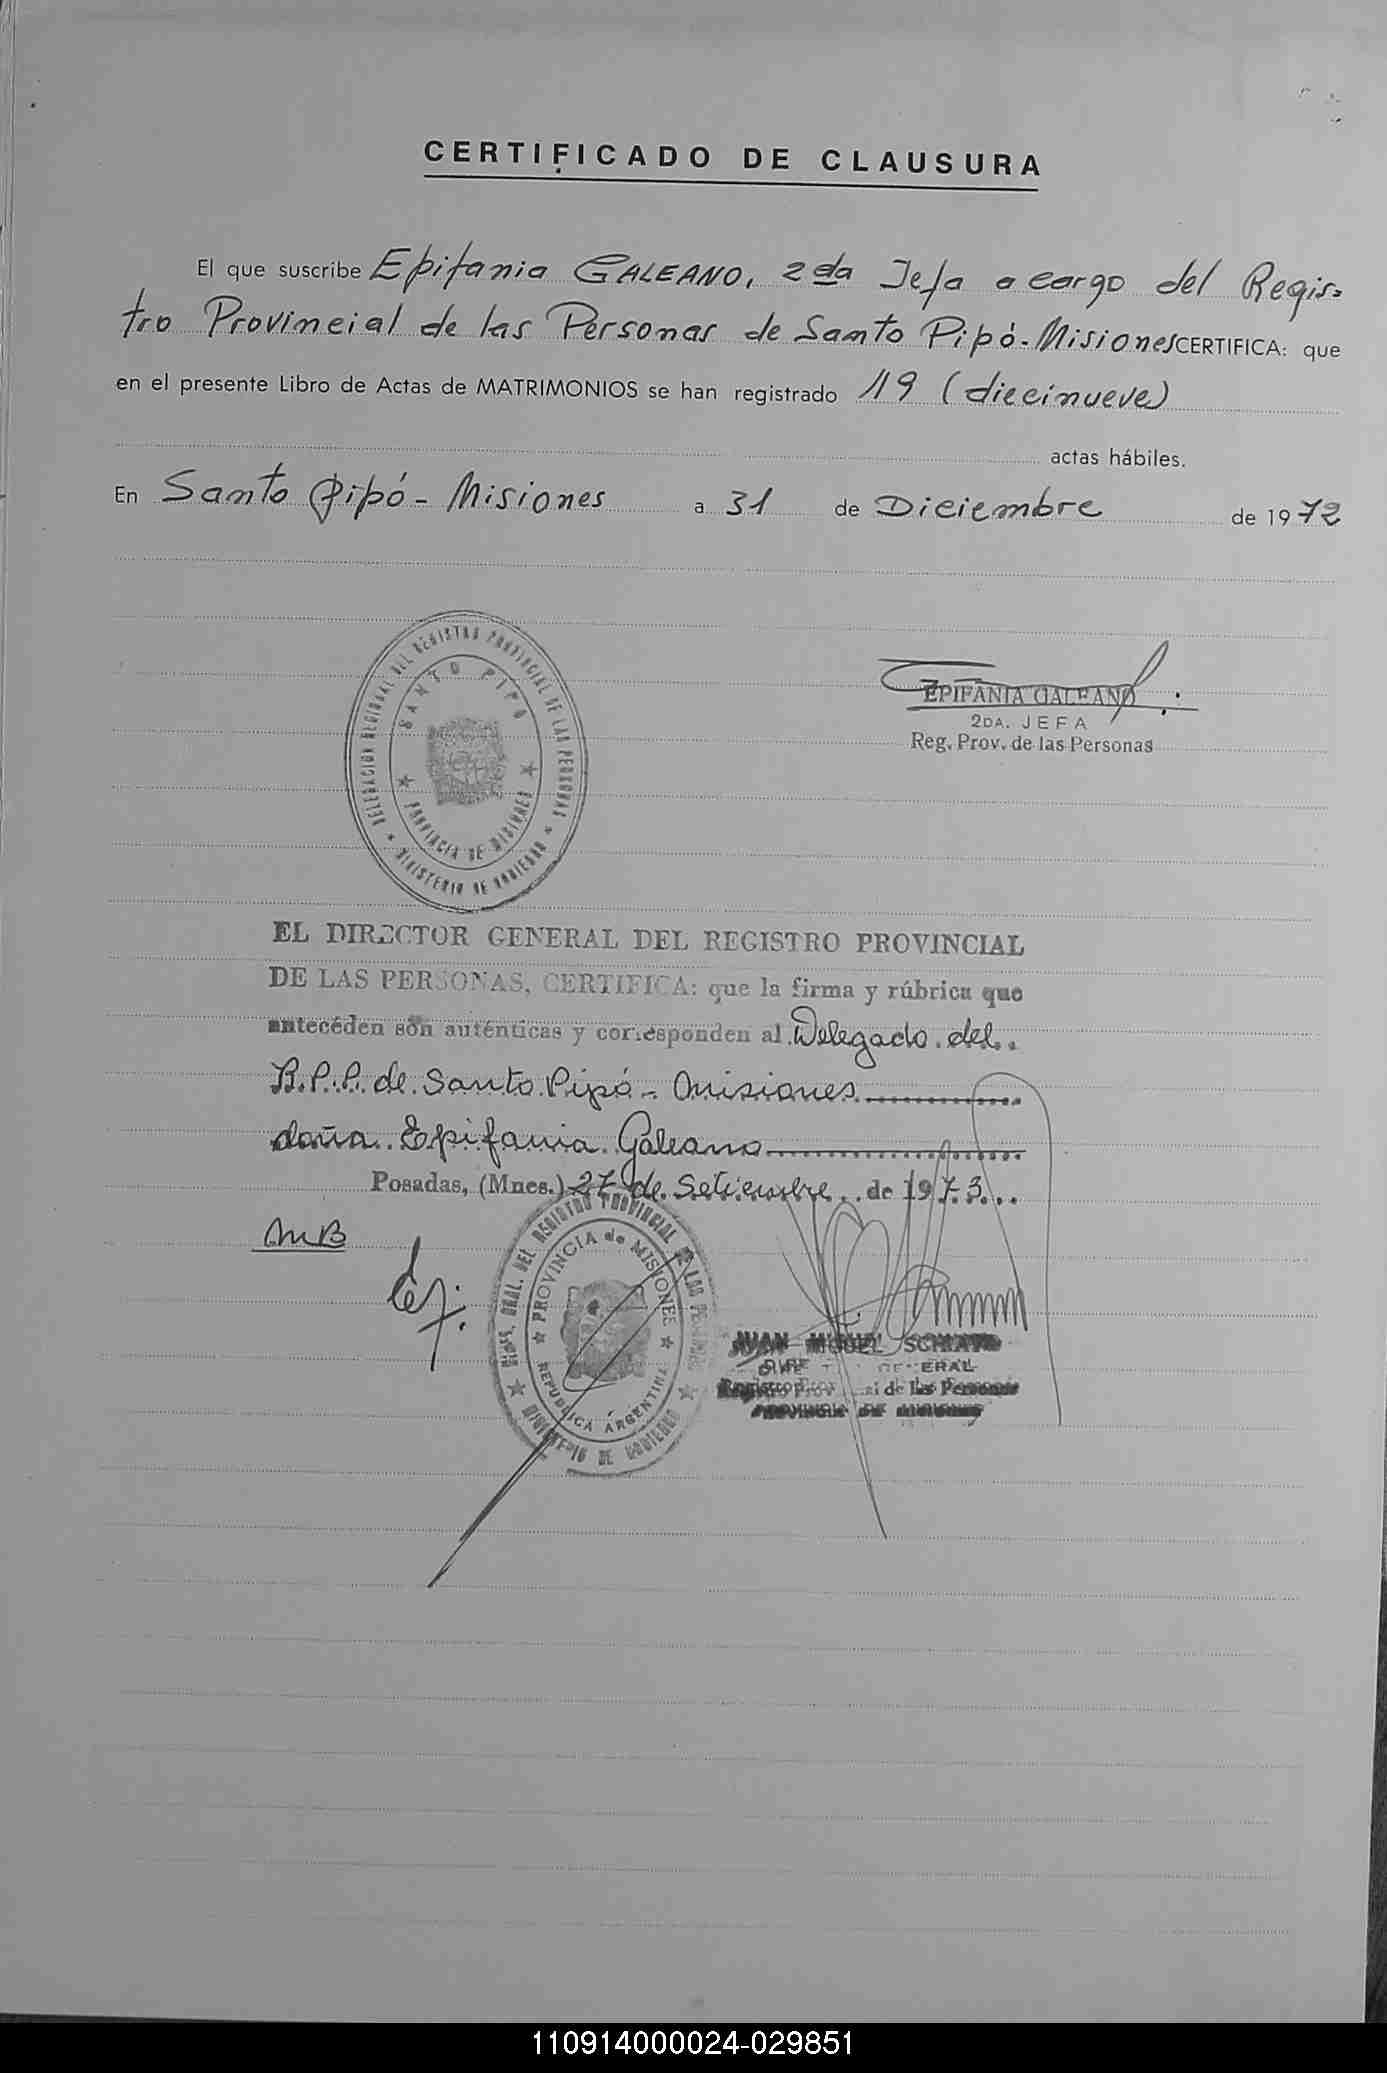 CERTIFICADO DE CLAUSURA
El que suscribe Epifania GALEANO, 2da Jefa a cargo del Regis-
tro Provincial de las Personas de Santo Pipó-Misiones CERTIFICA: que
en el presente Libro de Actas de MATRIMONIOS se han registrado 19 (diecinueve)
actas hábiles.
En Santo Pipó - Misiones a 31 de Diciembre de 1972
DELEGACION REGIONAL DEL REGISTRO PROVINCIAL DE LAS PERSONAS
SANTO PIPO
PROVINCIA DE MISIONES
MINISTERIO DE GOBIERNO
EPIFANIA GALEANO
2DA. JEFA
Reg. Prov. de las Personas
EL DIRECTOR GENERAL DEL REGISTRO PROVINCIAL
DE LAS PERSONAS, CERTIFICA: que la firma y rúbrica que
antecéden són auténticas y corresponden al Delegado del
R.P.P. de Santo Pipó - Misiones
doña Epifania Galeano
Posadas, (Mnes.) 27 de Setiembre de 1973
MB
DIR. GRAL. DEL REGISTRO PROVINCIAL DE LAS PERSONAS
PROVINCIA de MISIONES
REPUBLICA ARGENTINA
MINISTERIO DE GOBIERNO
JUAN MIGUEL
GENERAL
de las Personas
PROVINCIA DE MISIONES
110914000024-029851